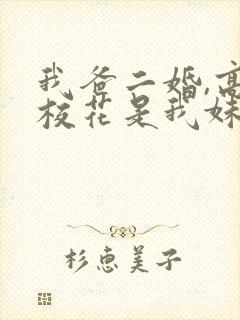 我爸二婚,高
校花是我妹
杉惠美子